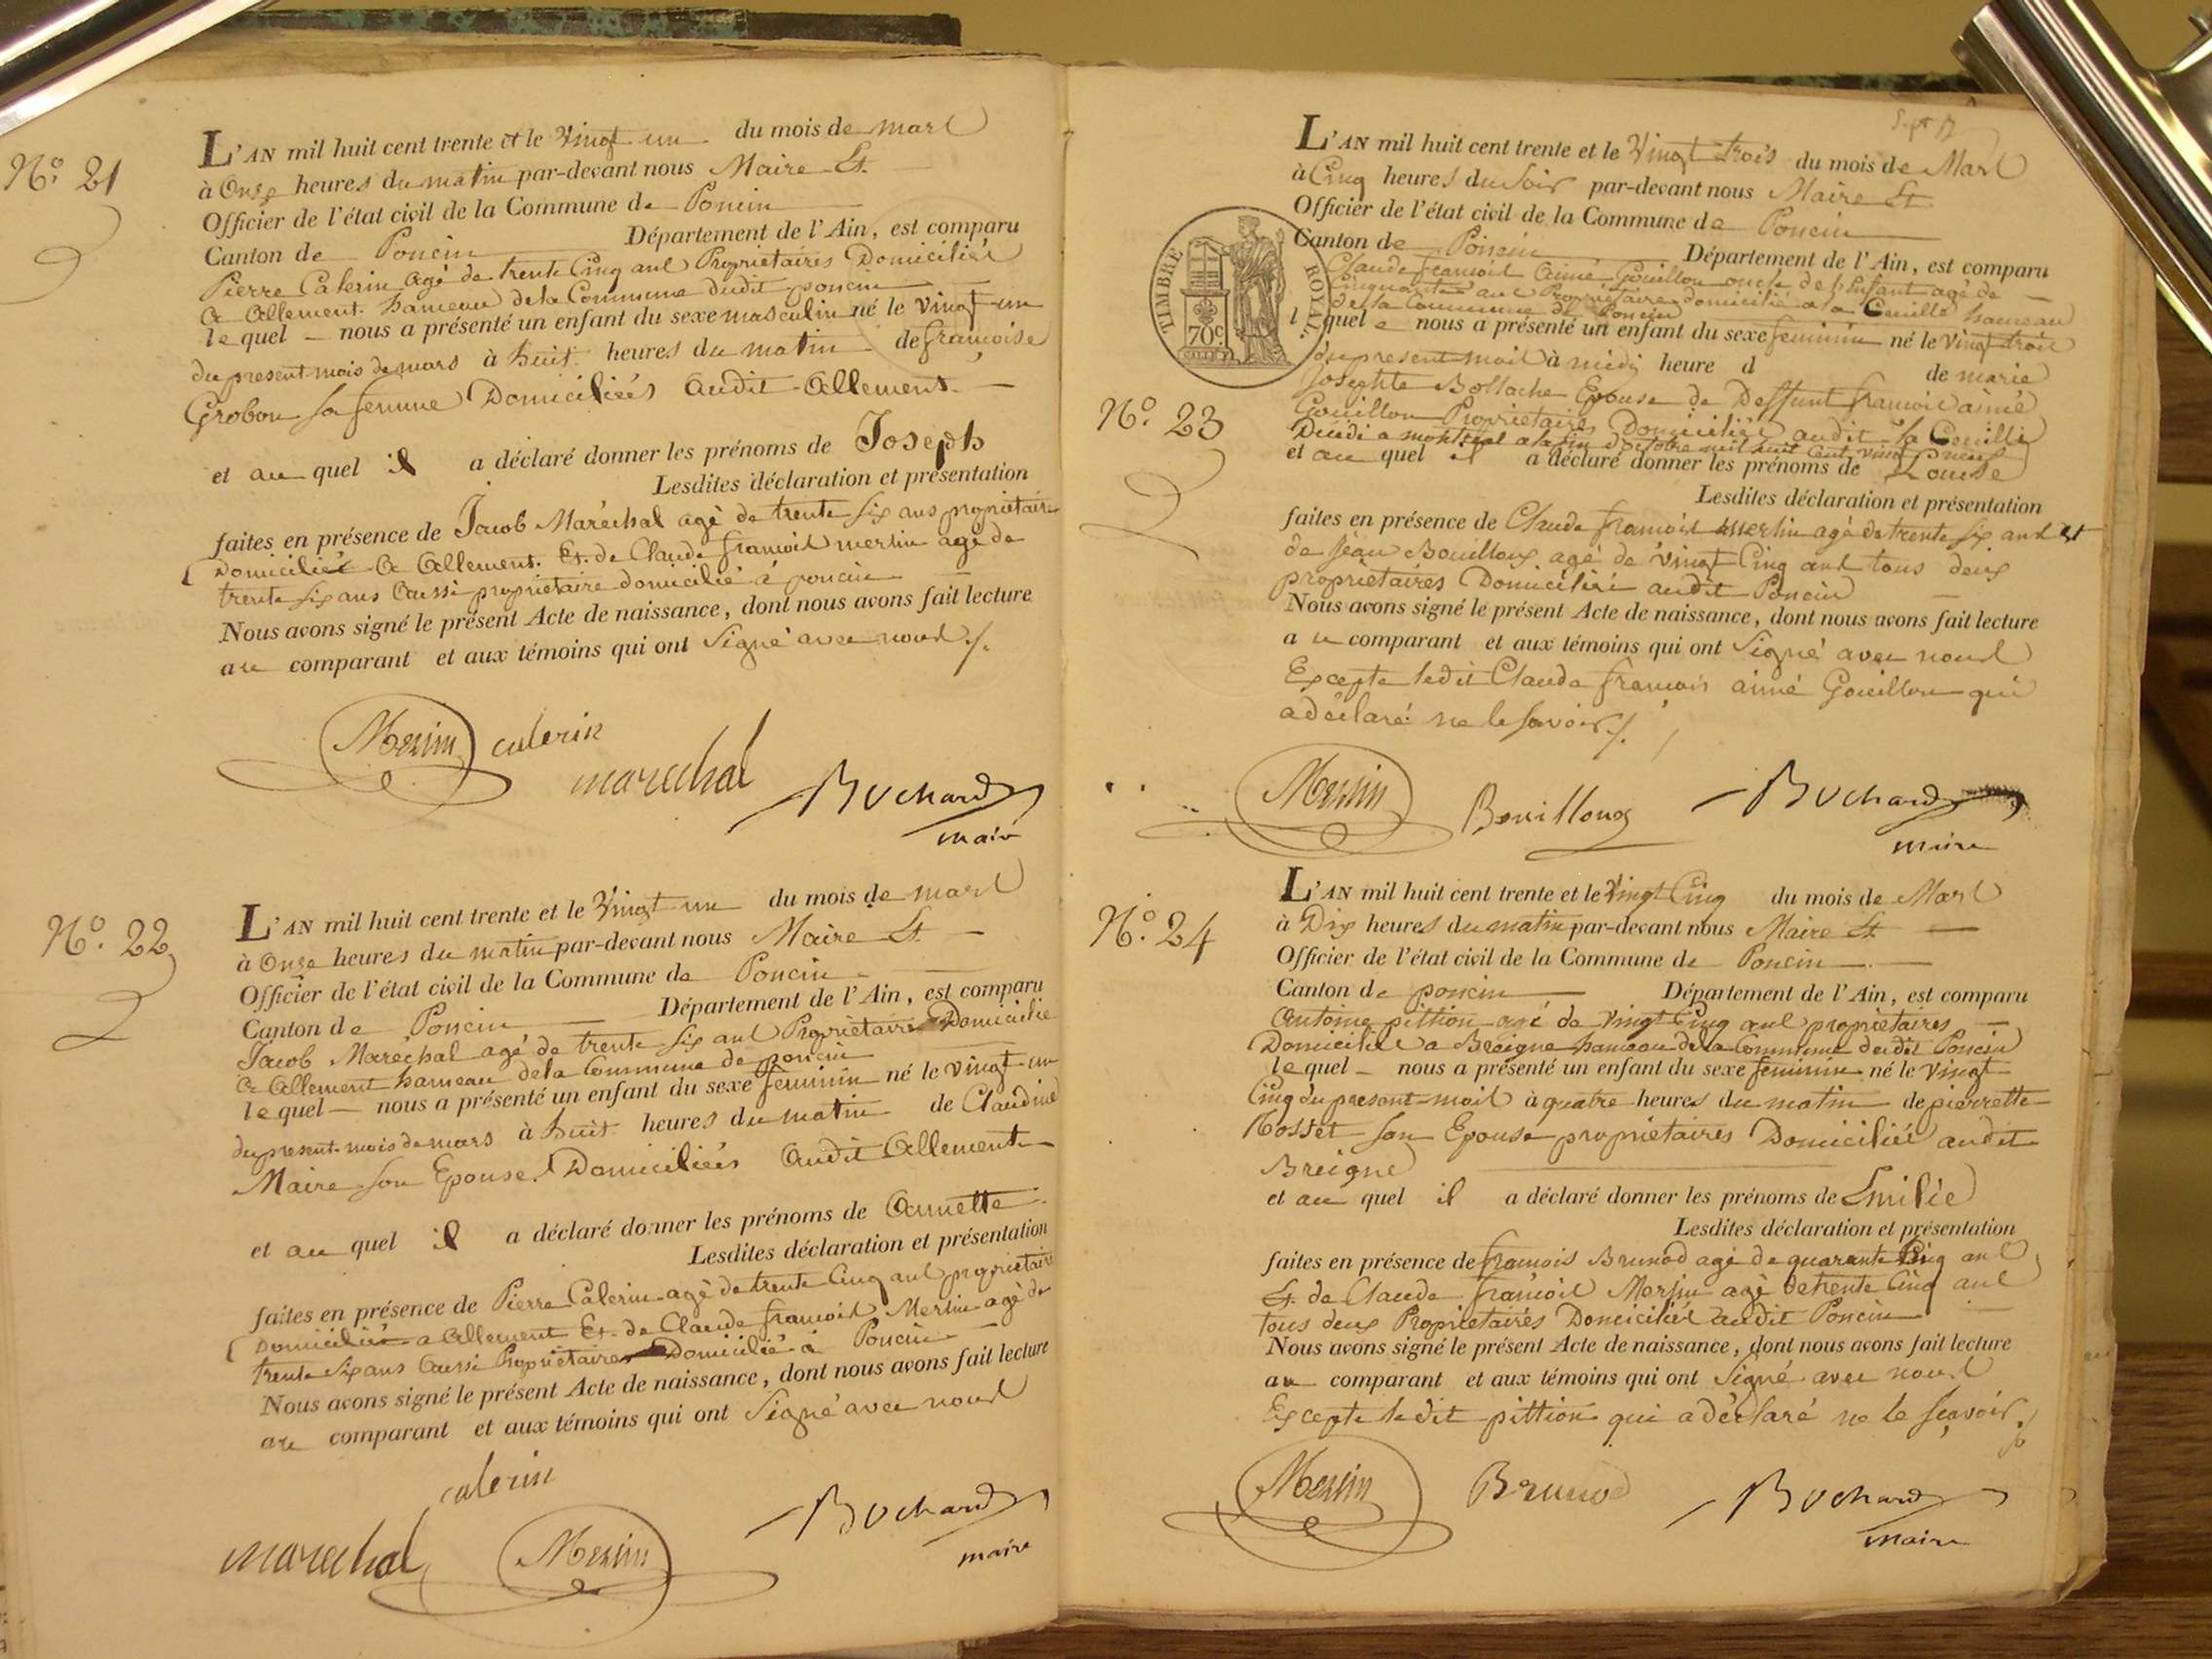 N.o 21
L'AN mil huit cent trente et le Vingt un du mois de mars
à Onze heures du matin par-devant nous Maire Et
Officier de l'état civil de la Commune de Poncin
Canton de Poncin Département de l'Ain, est comparu
Pierre Calerin agé de trente Cinq ans Propriétaires Domiciliés
a Allement hameau dela Commune dudit poncin
le quel nous a présenté un enfant du sexe masculin né le Vingt un
du present mois de mars à huit heures du matin de françoise
Grobon sa femme Domiciliés audit Allement
et au quel il a déclaré donner les prénoms de Joseph
Lesdites déclaration et présentation
faites en présence de Jacob Maréchal agé de trente six ans propriétaire
Domicilié a Allement. Et de Claude françois merlin agé de
trente six ans aussi propriétaire domicilié à poncin
Nous avons signé le présent Acte de naissance, dont nous avons fait lecture
au comparant et aux témoins qui ont Signé avec nous ./.
Merlin calerin
marechal Bochard
maire
N.o 22
L'AN mil huit cent trente et le Vingt un du mois de mars
à Onze heures du matin par-devant nous Maire Et
Officier de l'état civil de la Commune de Poncin
Canton de Poncin Département de l'Ain, est comparu
Jacob Maréchal agé de trente six ans Propriétaire Domicilié
a Allement hameau dela Commune de poncin
le quel nous a présenté un enfant du sexe feminin né le vingt un
du present mois de mars à huit heures du matin de Claudine
Maire son Epouse Domiciliés audit Allement
et au quel il a déclaré donner les prénoms de Annette
Lesdites déclaration et présentation
faites en présence de Pierre Calerin agé de trente Cinq ans propriétaire
Domicilié a Allement Et de Claude françois Merlin agé de
trente six ans aussi Propriétaire Domicilié à Poncin
Nous avons signé le présent Acte de naissance, dont nous avons fait lecture
au comparant et aux témoins qui ont Signé avec nous
calerin
marechal Merlin Bochard
maire
Sept
L'AN mil huit cent trente et le Vingt trois du mois de Mars
à Cinq heures du Soir par-devant nous Maire Et
Officier de l'état civil de la Commune de Poncin
Canton de Poncin Département de l'Ain, est comparu
TIMBRE ROYAL
70c
Claude françois aimé Gouillon oncle de l'Enfant agé de
Cinquante ans Propriétaire domicilié a la Cueille hameau
de la Commune de Poncin
l quel e nous a présenté un enfant du sexe feminin né le Vingt trois
du present mois à midi heure d de marie
Josephte Bollache Epouse de Deffunt francois aimé
N.o 23
Gouillon Propriétaires Domiciliés audit la Cueille
Décédé a montréal a la fin d'octobre mil huit Cent vingt neuf
et au quel il a déclaré donner les prénoms de Louise
Lesdites déclaration et présentation
faites en présence de Claude françois Merlin agé de trente six ans Et
de Jean Bouilloux agé de Vingt Cinq ans tous deux
propriétaires Domiciliés audit Poncin
Nous avons signé le présent Acte de naissance, dont nous avons fait lecture
a u comparant et aux témoins qui ont Signé avec nous
Excepte ledit Claude francois aimé Gouillon qui
a déclaré ne le savoir ./.
Merlin Bouilloux Bochard
maire
N.o 24
L'AN mil huit cent trente et le Vingt Cinq du mois de Mars
à Dix heures du matin par-devant nous Maire Et
Officier de l'état civil de la Commune de Poncin
Canton de poncin Département de l'Ain, est comparu
Antoine pittion agé de Vingt Cinq ans propriétaires
Domicilié a Breigne hameau dela Commune dudit Poncin
le quel nous a présenté un enfant du sexe feminin né le Vingt
Cinq du present mois à quatre heures du matin de pierrette
Rosset son Epouse propriétaires Domiciliés audit
Breigne
et au quel il a déclaré donner les prénoms de Emilie
Lesdites déclaration et présentation
faites en présence de francois Brunod agé de quarante Cinq ans
Et de Claude françois Merlin agé de trente Cinq ans
tous deux Propriétaires Domiciliés audit Poncin
Nous avons signé le présent Acte de naissance, dont nous avons fait lecture
au comparant et aux témoins qui ont Signé avec nous
Excepte ledit pittion qui a déclaré ne le sçavoir ./.
Merlin Brunod Bochard
maire